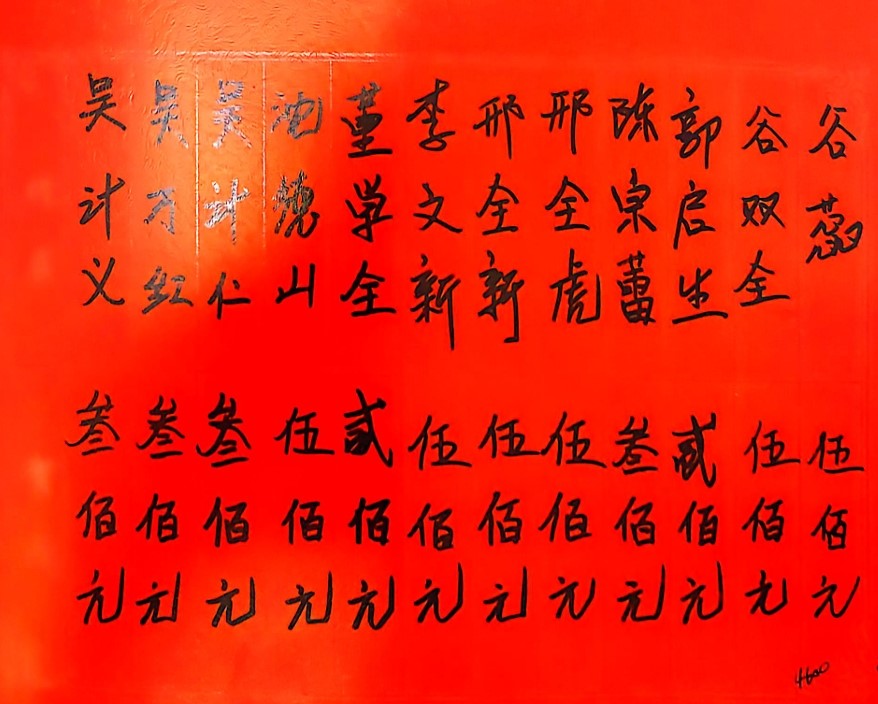 谷蕊 伍佰元
谷双全 伍佰元
郭启生 贰佰元
陈宗蕾 叁佰元
邢全虎 伍佰元
邢全新 伍佰元
李文新 伍佰元
董学全 贰佰元
沈 山 伍佰元
吴计仁 叁佰元
吴万红 叁佰元
吴计义 叁佰元
4600